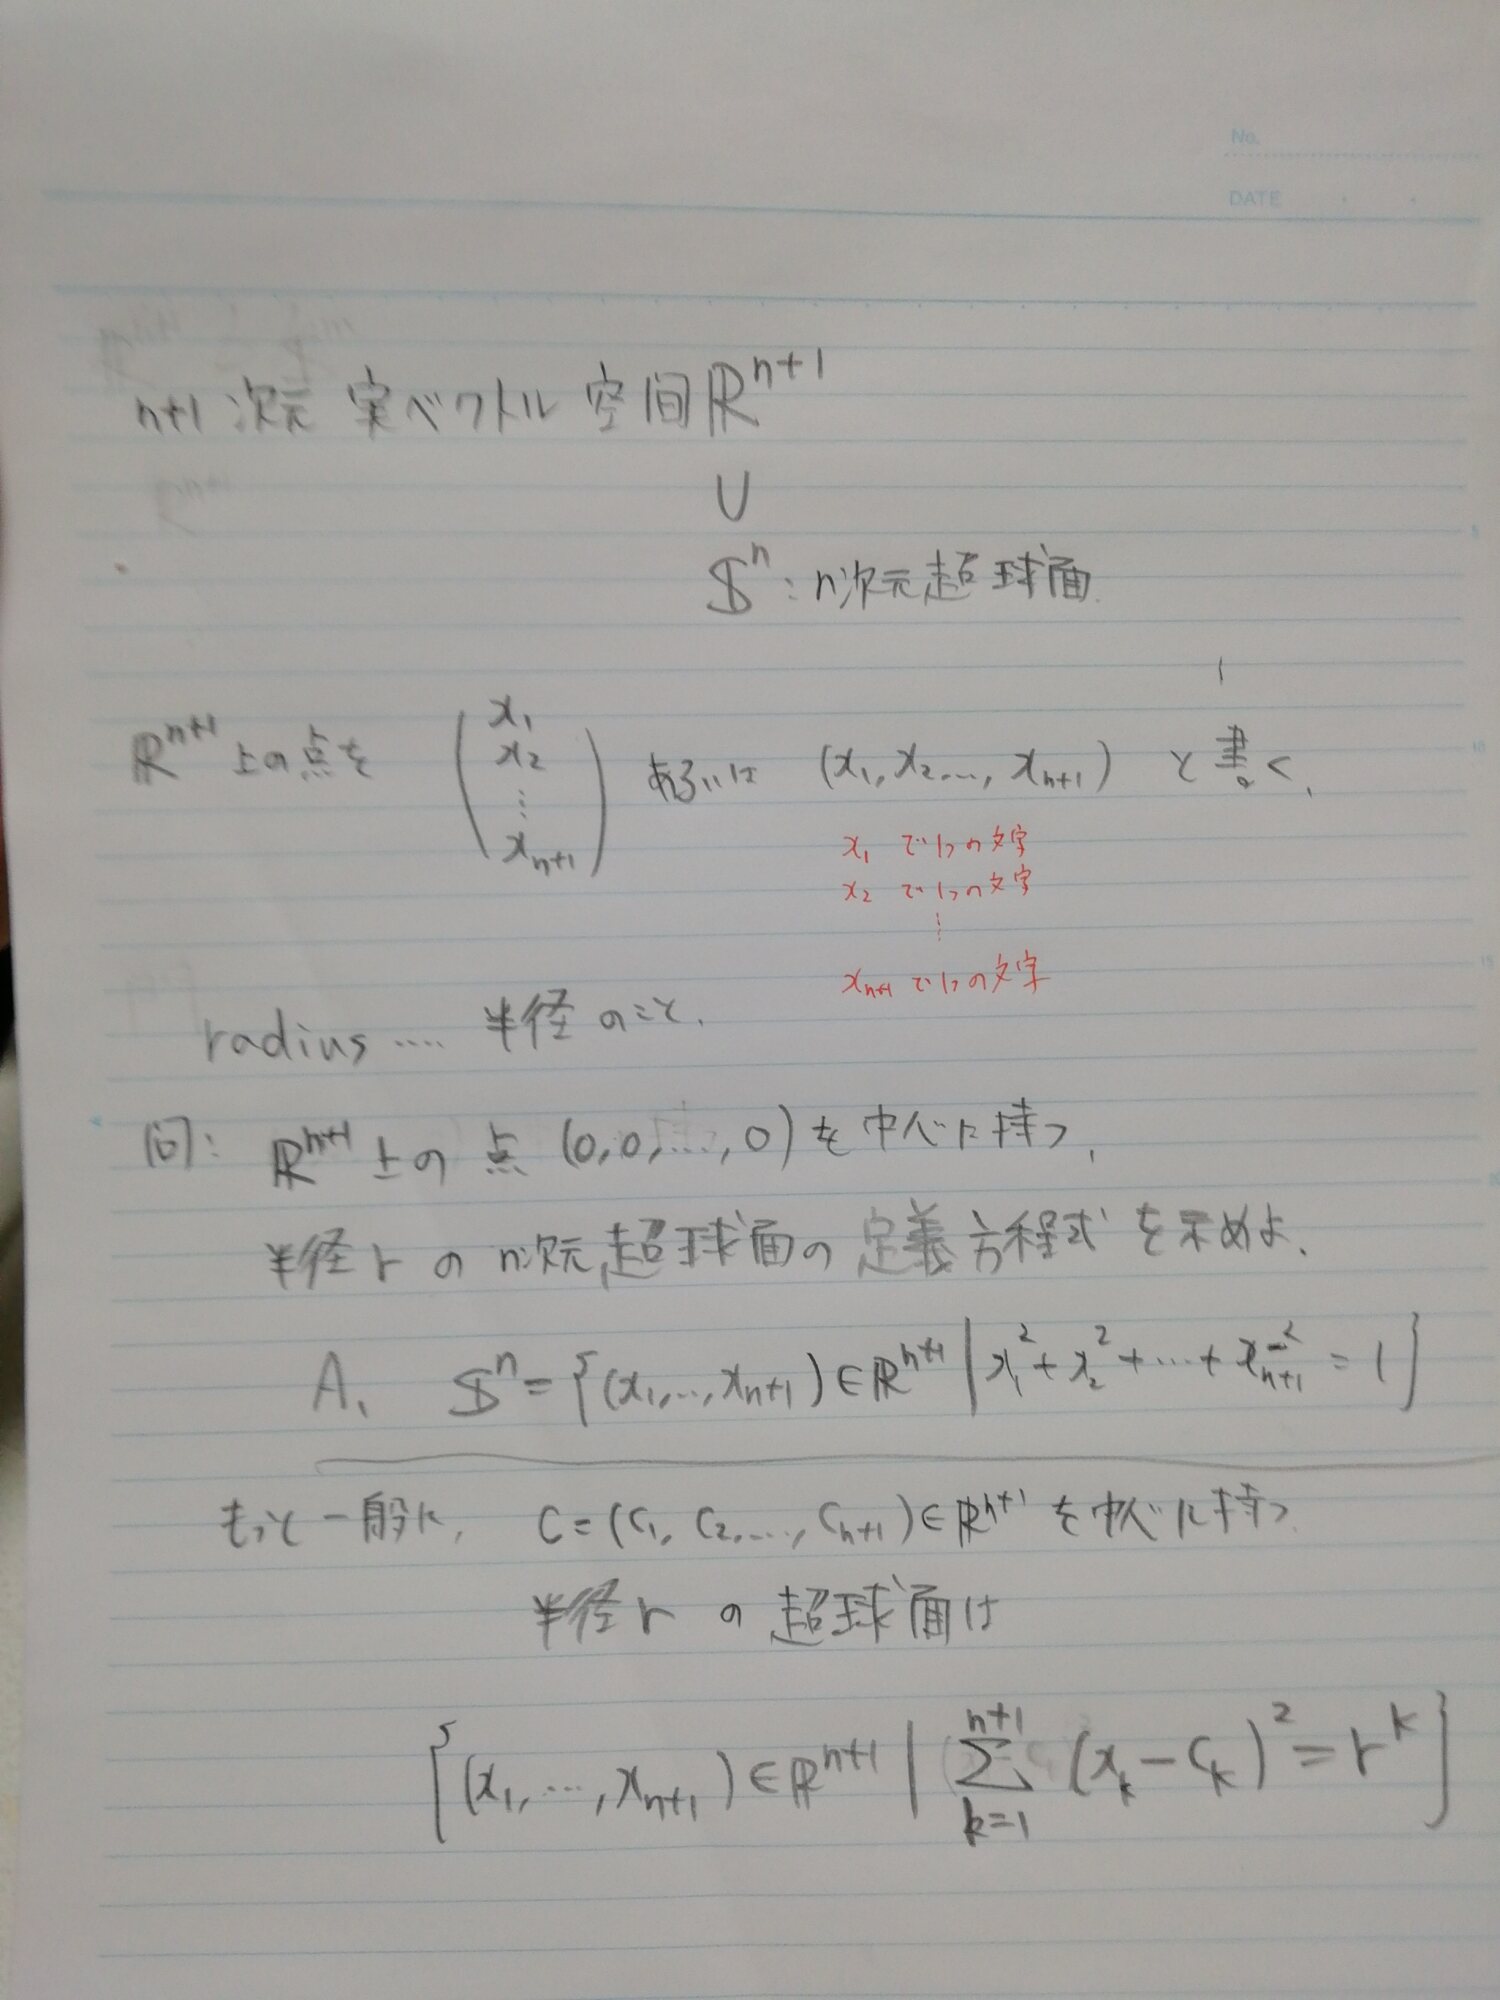 No.
DATE
n+1次元 実ベクトル空間ℝⁿ⁺¹
∪
𝕊ⁿ:n次元超球面.
ℝⁿ⁺¹上の点を (x₁ x₂ ⋮ xₙ₊₁) あるいは (x₁, x₂, ..., xₙ₊₁) と書く.
x₁ で1つの文字
x₂ で1つの文字
⋮
xₙ₊₁ で1つの文字
radius .... 半径のこと.
問: ℝⁿ⁺¹上の点 (0, 0, ..., 0) を中心に持つ,
半径rのn次元超球面の定義方程式を求めよ.
A. 𝕊ⁿ = {(x₁, ..., xₙ₊₁) ∈ ℝⁿ⁺¹ | x₁² + x₂² + ⋯ + xₙ₊₁² = 1}
もっと一般に, C = (C₁, C₂, ..., Cₙ₊₁) ∈ ℝⁿ⁺¹ を中心に持つ
半径r の超球面は
{(x₁, ⋯, xₙ₊₁) ∈ ℝⁿ⁺¹ | ∑ₖ₌₁ⁿ⁺¹ (xₖ − Cₖ)² = rᵏ}